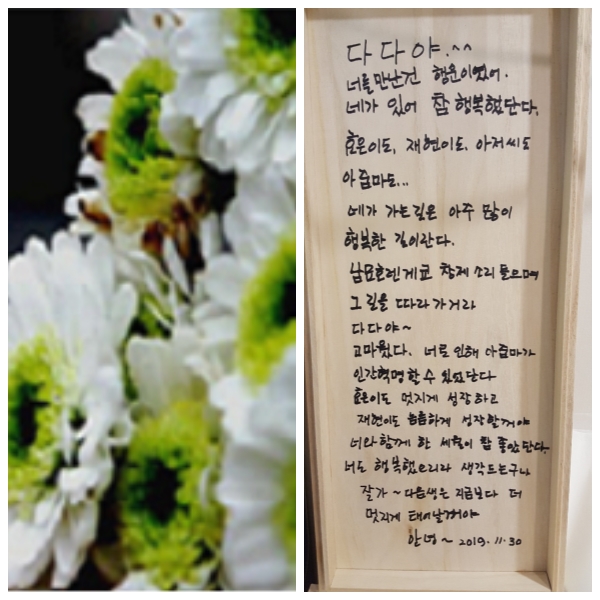 다다야.^^
너를 만난건 행운이었어.
네가 있어 참 행복했단다.
효은이도, 재현이도, 아저씨도
아줌마도...
네가 가는길은 아주 많이
행복한 길이란다.
남묘호렌게쿄 창제 소리 들으며
그 길을 따라가거라
다다야~
고마웠다. 너로 인해 아줌마가
인간혁명 할 수 있었단다
효은이도 멋지게 성장하고
재현이도 씩씩하게 성장할꺼야
너와 함께 한 세월이 참 좋았단다.
너도 행복했으리라 생각드는구나
잘가~ 다음생은 지금보다 더
멋지게 태어날꺼야
안녕~ 2019. 11. 30